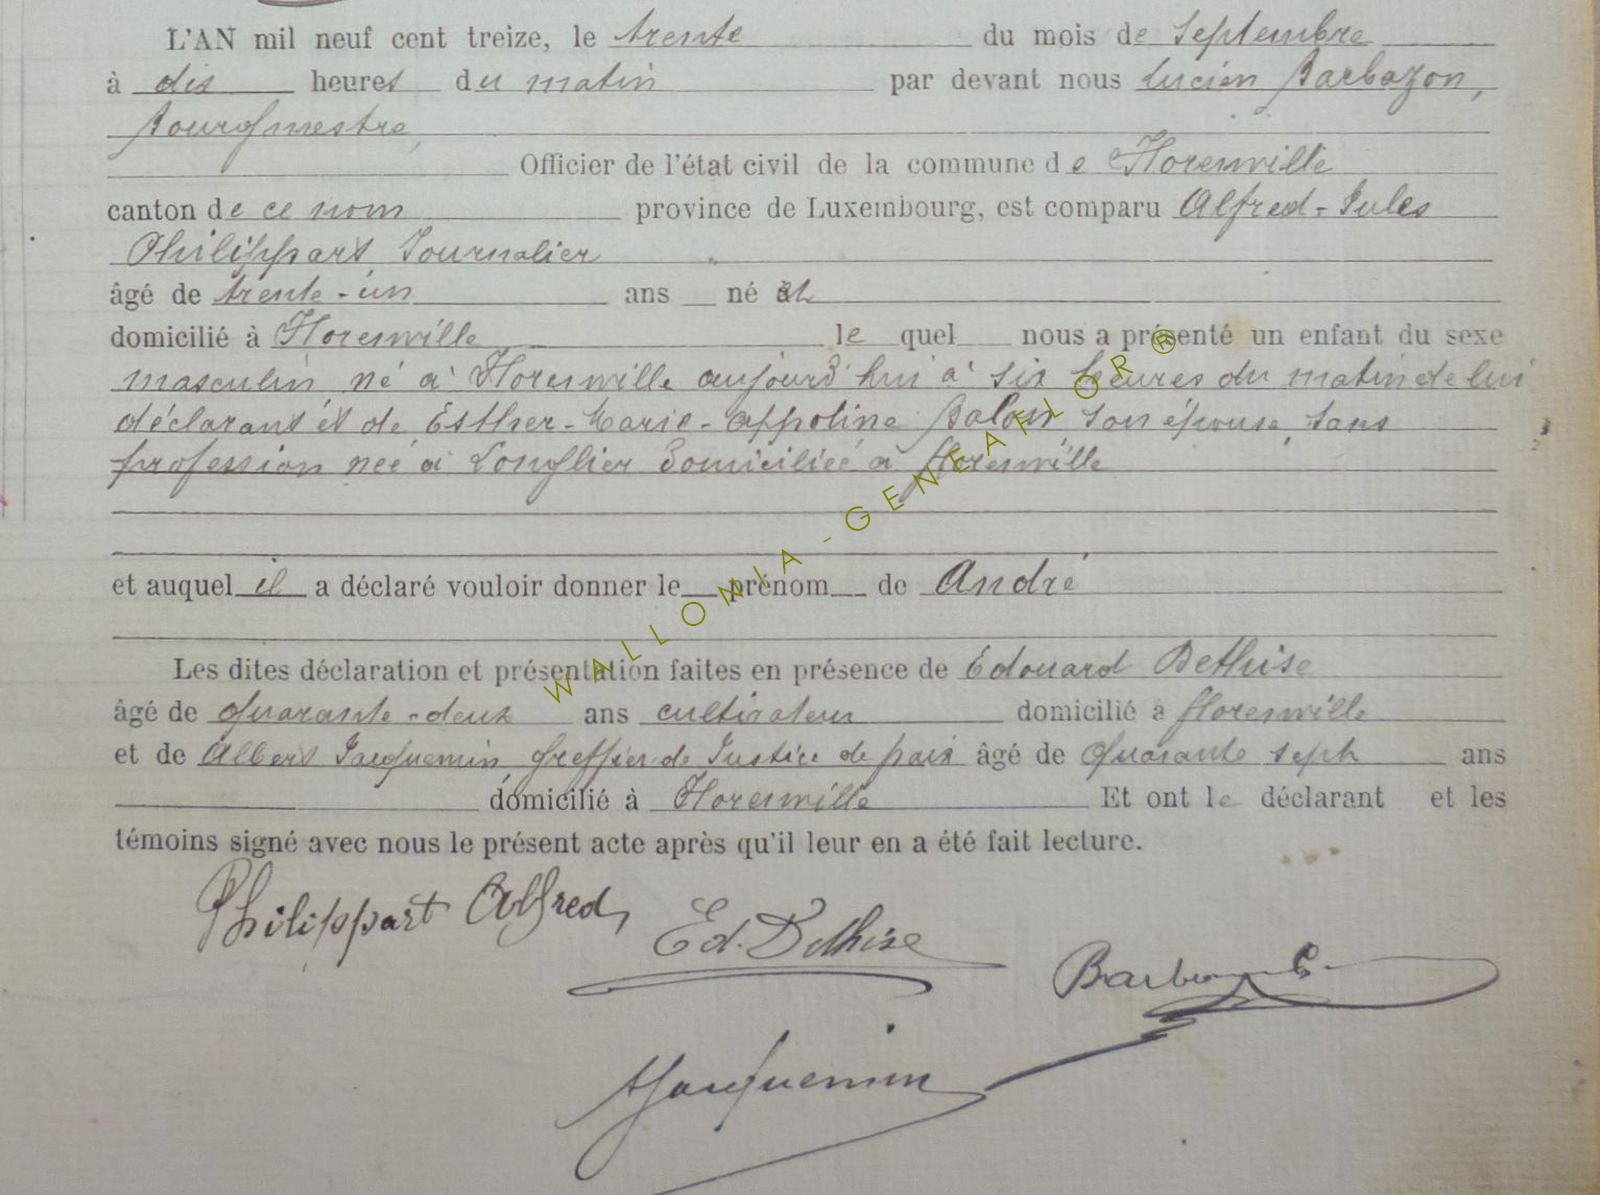 L'AN mil neuf cent treize, le trente du mois de Septembre
à dix heures du matin par devant nous Lucien Barbazon,
Bourgmestre,
Officier de l'état civil de la commune de Florenville
canton de ce nom province de Luxembourg, est comparu Alfred-Jules
Philippart, Journalier
âgé de trente-un ans né et
domicilié à Florenville lequel nous a présenté un enfant du sexe
masculin né à Florenville aujourd'hui à six heures du matin de lui
déclarant et de Esther-Marie-Appoline son épouse, sans
profession née à Longlier domiciliée à Florenville
et auquel il a déclaré vouloir donner le prénom de André
Les dites déclaration et présentation faites en présence de Edouard Dethise
âgé de quarante-deux ans cultivateur domicilié à Florenville
et de Albert Jacquemin, Greffier de Justice de paix âgé de quarante sept ans
domicilié à Florenville Et ont le déclarant et les
témoins signé avec nous le présent acte après qu'il leur en a été fait lecture.
Philippart Alfred,
Ed. Dethise
Barbazon
AJacquemin
WALLONIA-GENEAFLOR®